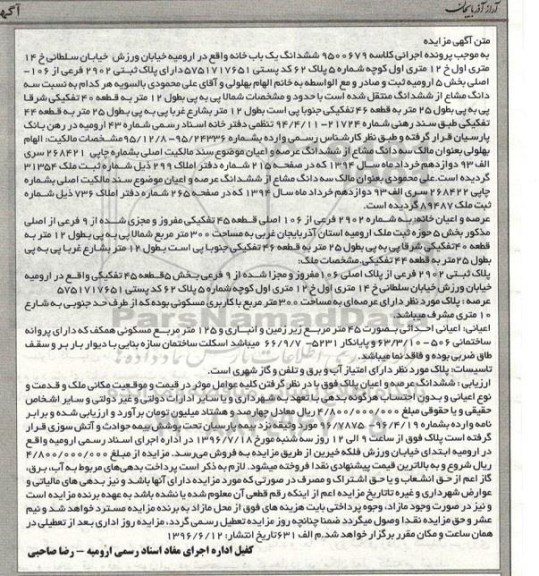 آراز آذربایجان
متن آگهی مزایده
به موجب پرونده اجرائی کلاسه ۹۵۰۰۶۷۹ ششدانگ یک باب خانه واقع در ارومیه خیابان ورزش خیابان سلطانی خ ۱۴
متری اول خ ۱۲ متری اول کوچه شماره ۵ پلاک ۶۲ کد پستی ۵۷۵۱۷۱۷۶۵۱ دارای پلاک ثبتی ۲۹۰۲ فرعی از ۱۰۶-
اصلی بخش ۵ ارومیه ثبت و صادر و مع الواسطه به خانم الهام بهلولی و آقای علی محمودی بالسویه هر کدام به نسبت سه
دانگ مشاع از ششدانگ منتقل شده است با حدود و مشخصات شمالا پی به پی بطول ۱۲ متر به قطعه ۴۰ تفکیکی شرقا
پی به پی بطول ۲۵ متر به قطعه ۴۶ تفکیکی جنوبا پی است بطول ۱۲ متر بشارع غربا پی به پی بطول ۲۵ متر به قطعه ۴۴
تفکیکی طبق سند رهنی شماره ۲۱۷۲۴-۹۴/۴/۱۱ تنظمی دفتر خانه اسناد رسمی شماره ۴۳ ارومیه در رهن بانک
پارسیان قرار گرفته و طبق نظر کارشناس رسمی وارده بشماره ۹۵/۲۴۳۳۶-۹۵/۱۲/۸ مشخصات مالکیت: الهام
بهلولی بعنوان مالک سه دانگ مشاع از ششدانگ عرصه و اعیان موضوع سند مالکیت اصلی بشماره چاپی ۲۶۸۴۲۱ سری
الف ۹۳ دوازدهم خرداد ماه سال ۱۳۹۴ که در صفحه ۲۱۵ شماره دفتر املاک ۲۹۹ ذیل شماره ثبت ملک ۳۱۳۵۴
گردیده است.علی محمودی بعنوان مالک سه دانگ مشاع از ششدانگ عرصه و اعیان موضوع سند مالکیت اصلی بشماره
چاپی ۲۶۸۴۲۲ سری الف ۹۳ دوازدهم خرداد ماه سال ۱۳۹۴ که در صفحه ۲۶۵ شماره دفتر املاک ۷۳۶ ذیل شماره
ثبت ملک ۸۹۴۸۷ گردیده است.
عرصه و اعیان خانه: به شماره ۲۹۰۲ فرعی از ۱۰۶ اصلی قطعه ۴۵ تفکیکی مفروز و مجزی شده از ۹ فرعی از اصلی
مذکور بخش ۵ حوزه ثبت ملک ارومیه استان آذربایجان غربی به مساحت ۳۰۰ متر مربع شمالا پی به پی بطول ۱۲ متر به
قطعه ۴۰ تفکیکی شرقا پی به پی بطول ۲۵ متر به قطعه ۴۶ تفکیکی جنوبا پی است بطول ۱۲ متر بشارع غربا پی به پی
بطول ۲۵ متر به قطعه ۴۴ تفکیکی.مشخصات ملک:
پلاک ثبتی ۲۹۰۲ فرعی از پلاک اصلی ۱۰۶ مفروز و مجزا شده از ۹ فرعی بخش ۵ قطعه ۴۵ تفکیکی واقع در ارومیه
خیابان ورزش خیابان سلطانی خ ۱۴ متری اول خ ۱۲ متری اول کوچه شماره ۵ پلاک ۶۲ کد پستی ۵۷۵۱۷۱۷۶۵۱
عرصه : پلاک مورد نظر دارای عرصه‌ای به مساحت ۳۰۰ متر مربع با کاربری مسکونی بوده که از طرف حد جنوبی به شارع
۱۰ متری مشرف میباشد.
اعیانی: اعیانی احداثی بصورت ۴۵ متر مربع زیر زمین و انباری و ۱۲۵ متر مربع مسکونی همکف که دارای پروانه
ساختمانی ۵۰۶-۶۳/۳/۱۰ و پایانکار ۵۲۳۱-۶۶/۹/۷ میباشد اسکلت ساختمان سازه بنایی با دیوار باربر و سقف
طاق ضربی بوده و فاقد نما میباشد.
تاسیسات: پلاک مورد نظر دارای امتیاز آب و برق و تلفن و گاز شهری است.
ارزیابی : ششدانگ عرصه و اعیان پلاک فوق با در نظر گرفتن کلیه عوامل موثر در قیمت و موقعیت مکانی ملک و قدمت و
نوع اعیانی و بدون احتساب هرگونه بدهی یا تعهد به شهرداری و یا سایر ادارات دولتی و غیر دولتی و سایر اشخاص
حقیقی و یا حقوقی مبلغ ۴/۸۰۰/۰۰۰/۰۰۰ ریال معادل چهارصد و هشتاد میلیون تومان برآورد و ارزیابی شده و برابر
نامه وارده بشماره ۹۶/۷۸۷۵-۹۶/۴/۱۹ مورد وثیقه نزد بیمه پارسیان تحت پوشش بیمه حوادث و آتش سوزی قرار
گرفته است پلاک فوق از ساعت ۹ الی ۱۲ روز سه شنبه مورخ ۱۳۹۶/۷/۱۸ در اداره اجرای اسناد رسمی ارومیه واقع
در ارومیه ابتدای خیابان ورزش فلکه خیرین از طریق مزایده به فروش می‌رسد. مزایده از مبلغ ۴/۸۰۰/۰۰۰/۰۰۰
ریال شروع و به بالاترین قیمت پیشنهادی نقدا فروخته میشود. لازم به ذکر است پرداخت بدهی‌های مربوط به آب، برق،
گاز اعم از حق انشعاب و یا حق اشتراک و مصرف در صورتی که مورد مزایده دارای آنها باشد و نیز بدهی های مالیاتی و
عوارض شهرداری و غیره تا تاریخ مزایده اعم از اینکه رقم قطعی آن معلوم شده یا نشده باشد به عهده برنده مزایده است
و نیز در صورت وجود مازاد، وجوه پرداختی بابت هزینه های فوق از محل مازاد به برنده مزایده مسترد خواهد شد و نیم
عشر و حق مزایده نقدا وصول میگردد ضمنا چنانچه روز مزایده تعطیل رسمی گردد، مزایده روز اداری بعد از تعطیلی در
همان ساعت و مکان مقرر برگزار خواهد شد.م الف ۶۳۱ تاریخ انتشار: ۱۳۹۶/۶/۱۲
کفیل اداره اجرای مفاد اسناد رسمی ارومیه – رضا صاحبی